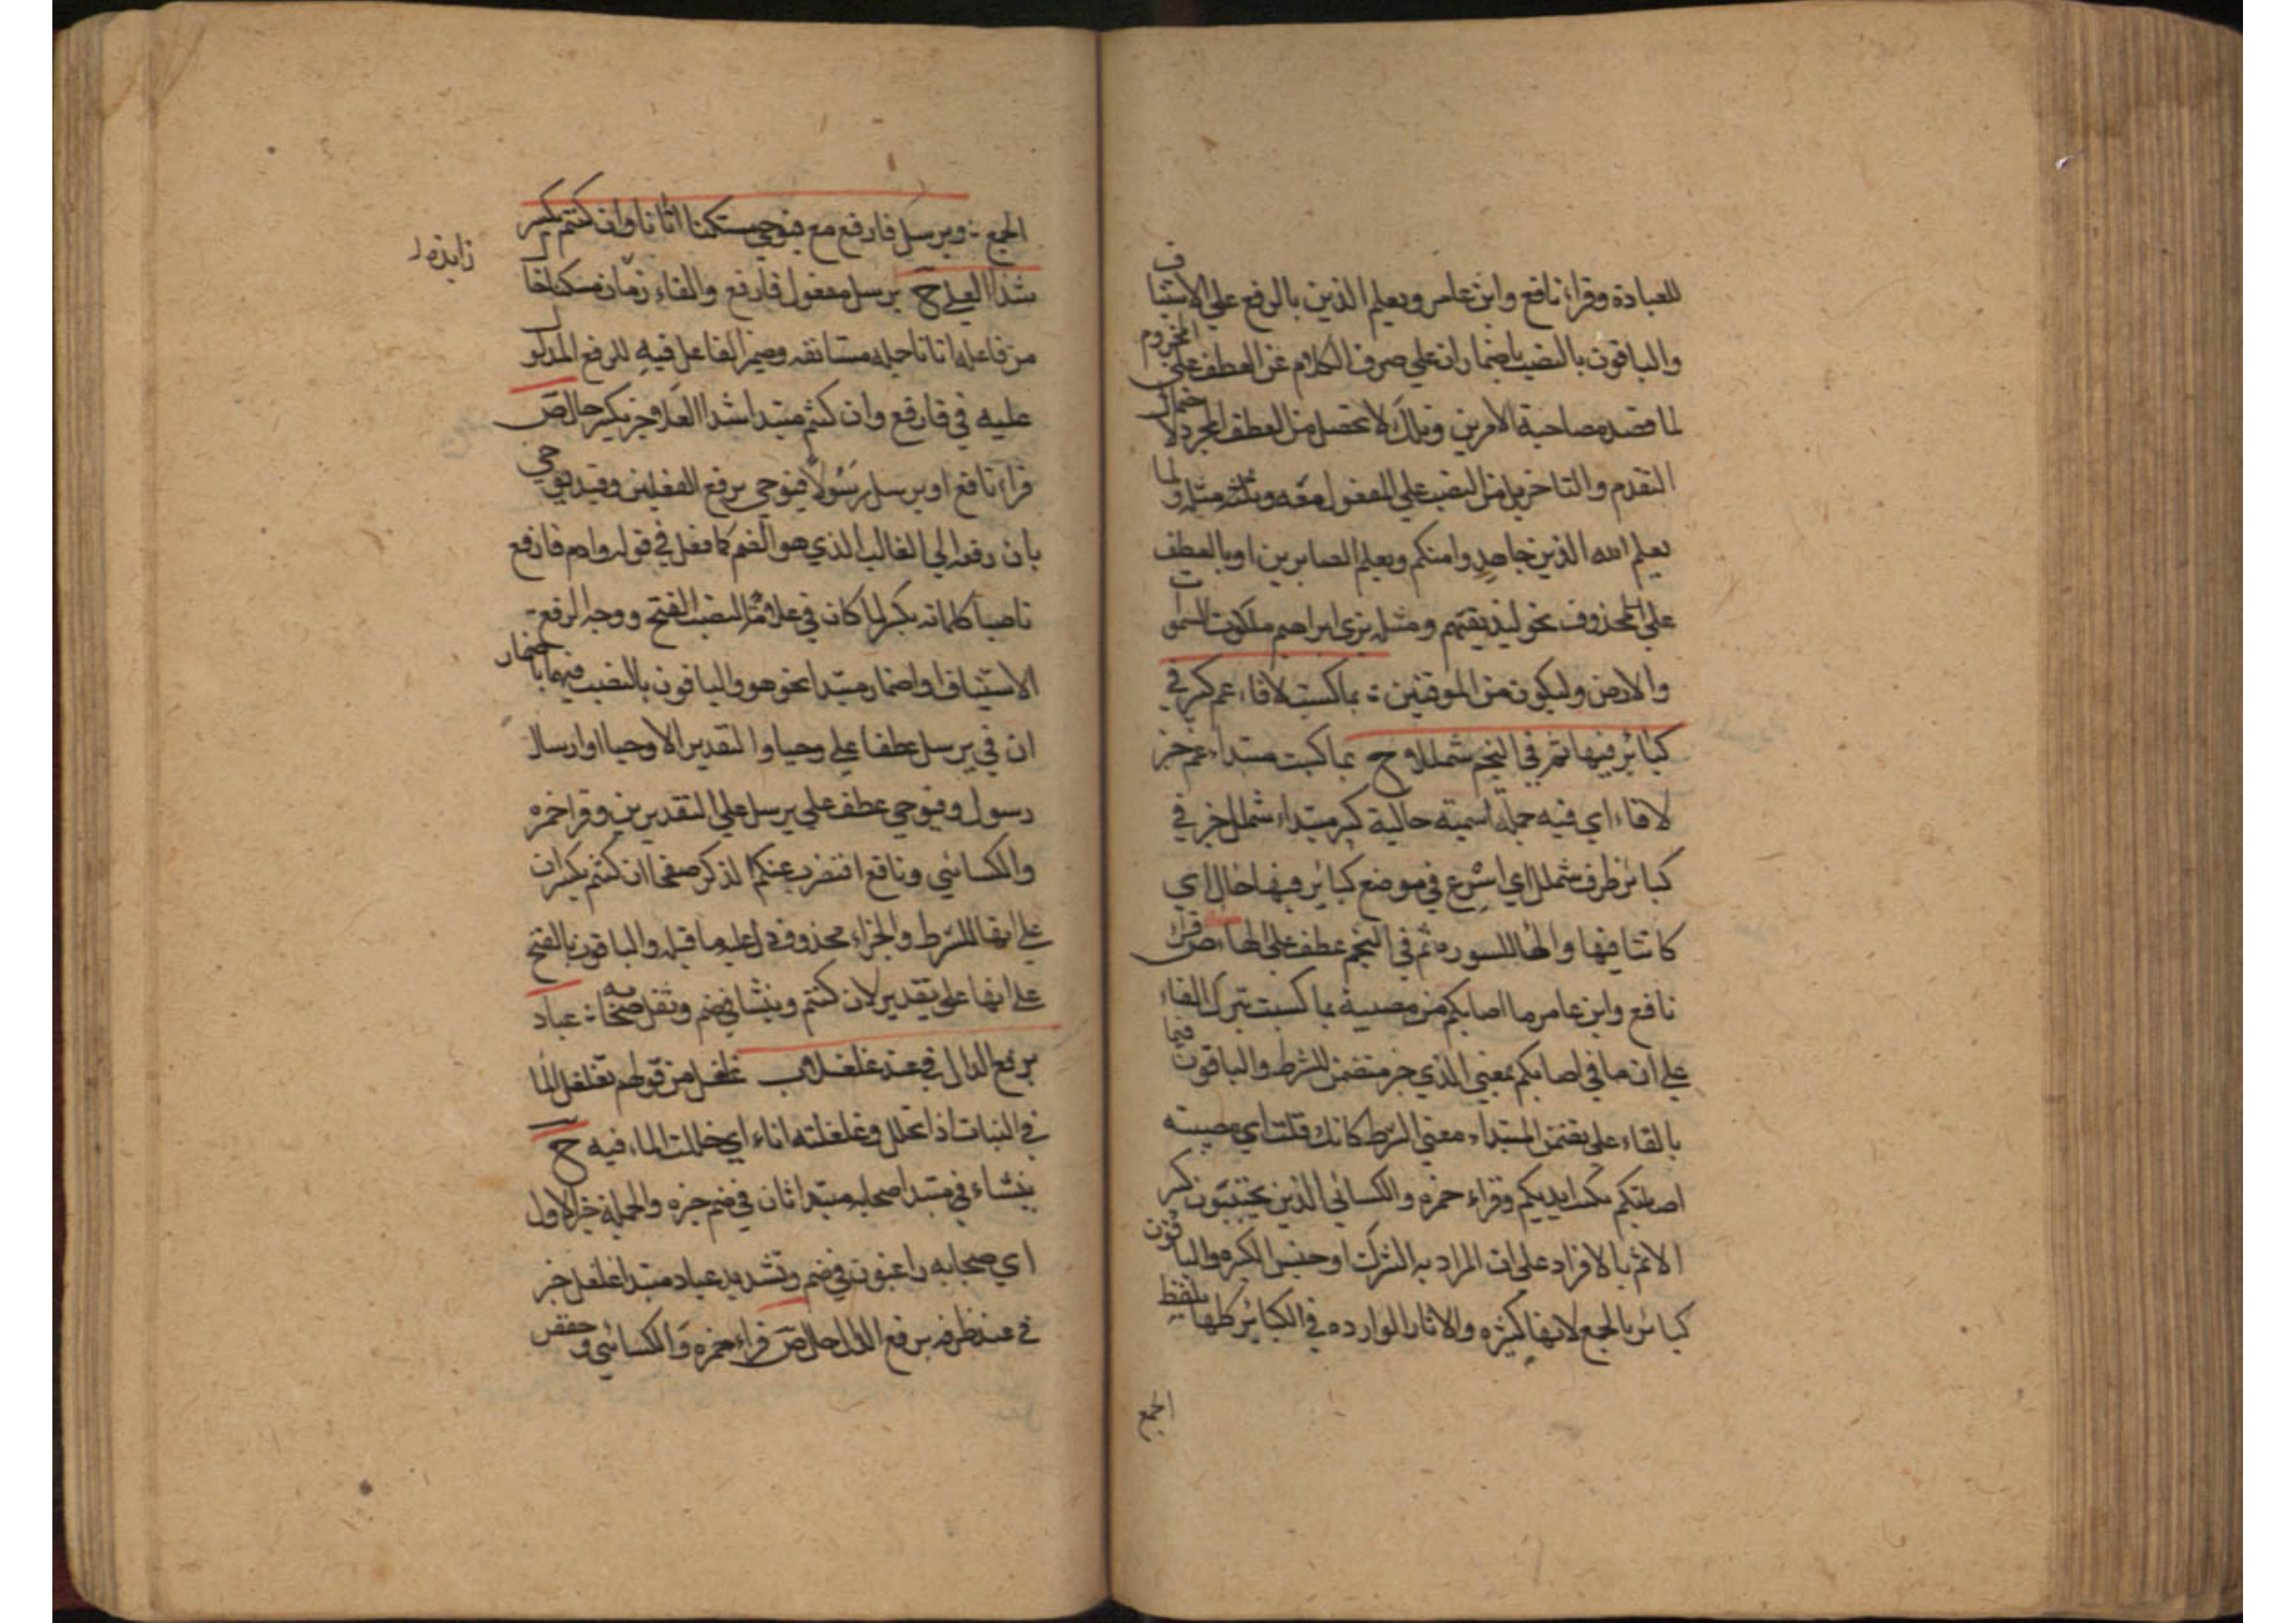 للعبادة وقراء نافع وابن عامر ويعلم الذين بالرفع علي الاستيناف
والباقون بالنصب باضمار ان علي صرف الكلام عن العطف علي المجزوم
لما قصد مصاحبة الامرين وذلك لا تحصل من العطف المجرد لاحتمال
التقدم والتاخر بل من النصب علي المفعول معه ومثله ولما
يعلم الله الذين جاهدوا منكم ويعلم الصابرين او بالعطف
علي المحذوف نحو ليذيقهم ومثله نري ابراهيم ملكوت السموت
والارض وليكون من الموقنين : بما كسبت لا فاء عم كبر في
كبائر فيها ثم في النجم شمللا ح بما كسبت مبتداء عم خبر
لا فاء اي فيه جملة اسمية حالية كبير مبتداء شملل خبر في
كبائر ظرف شملل اي اسرع في موضع كبائر فيها حال اي
كائنا فيها والها للسوره ثم في النجم عطف علي الهاء ص قراء
نافع وابن عامر ما اصابكم من مصيبة بما كسبت بترك الفاء
علي ان ما في اصابكم بمعني الذي خبر متضمن للشرط والباقون فبما
بالفاء علي تضمن المبتداء معني الشرط كانك قلت اي مصيبته
اصابتكم بكسب ايديكم وقراء حمزه والكسائي الذين يجتنبون كبير
الاثم بالافراد علي ان المراد به الشرك او جنس الكبيره والباقون
كبائر بالجمع لانها كثيره والاثار الوارده في الكبائر كلها بلفظ
الجمع
الجمع : ويرسل فارفع مع فيوحي مسكنا اتانا وان كنتم بكسر
شذا العلي ح يرسل مفعول فارفع والفاء زائدة مسكنا حال
من فاعله اتانا جمله مستانفه وضمير الفاعل فيه للرفع المدلول
عليه في فارفع وان كنتم مبتدا شذا العلا خبر بكسر حال ص
قراء نافع او يرسل رسولا فيوحي برفع الفعلين وقيد فيوحي
بان رفعه الي الغالب الذي هو الضم كما فعل في قوله وادم فارفع
ناصبا كلماته بكسر لما كان في علامة النصب الفتح ووجه الرفع
الاستيناف او اضمار مبتدا نحو هو والباقون بالنصب فيهما باضمار
ان في يرسل عطفا علي وحيا والتقدير الا وحيا او ارسال
رسول وفيوحي عطف علي يرسل علي التقديرين وقرا حمزه
والكسائي ونافع افنضرب عنكم الذكر صفحا ان كنتم بكسر ان
علي انها للشرط والجزاء محذوف دل عليه ما قبله والباقون بالفتح
علي انها علي تقدير لان كنتم وينشا في ضم وثقل صحابه : عباد
برفع الدال في عند غلغلا ب غلغل من قولهم تغلغل الما
في النبات اذا تخلل وغلغلته انا اي خللت الماء فيه ح
ينشاء في مبتدا صحابه مبتدا ثان في ضم خبره والجملة خبر الاول
اي صحابه راغبون في ضم وتشديد عباد مبتدا غلغل خبر
في عند ظرفه برفع الدال حال ص قراء حمزه والكسائي وحفص
زايده